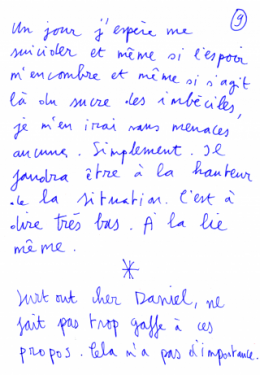 9
Un jour j'espère me
suicider et même si l'espoir
m'encombre et même si s'agit
là du sucre des imbéciles,
je m'en irai sans menaces
aucunes. Simplement. Il
faudra être à la hauteur
de la situation. C'est à
dire très bas. A la lie
même.
*
Surtout cher Daniel, ne
fait pas trop gaffe à ces
propos. Cela n'a pas d'importance.